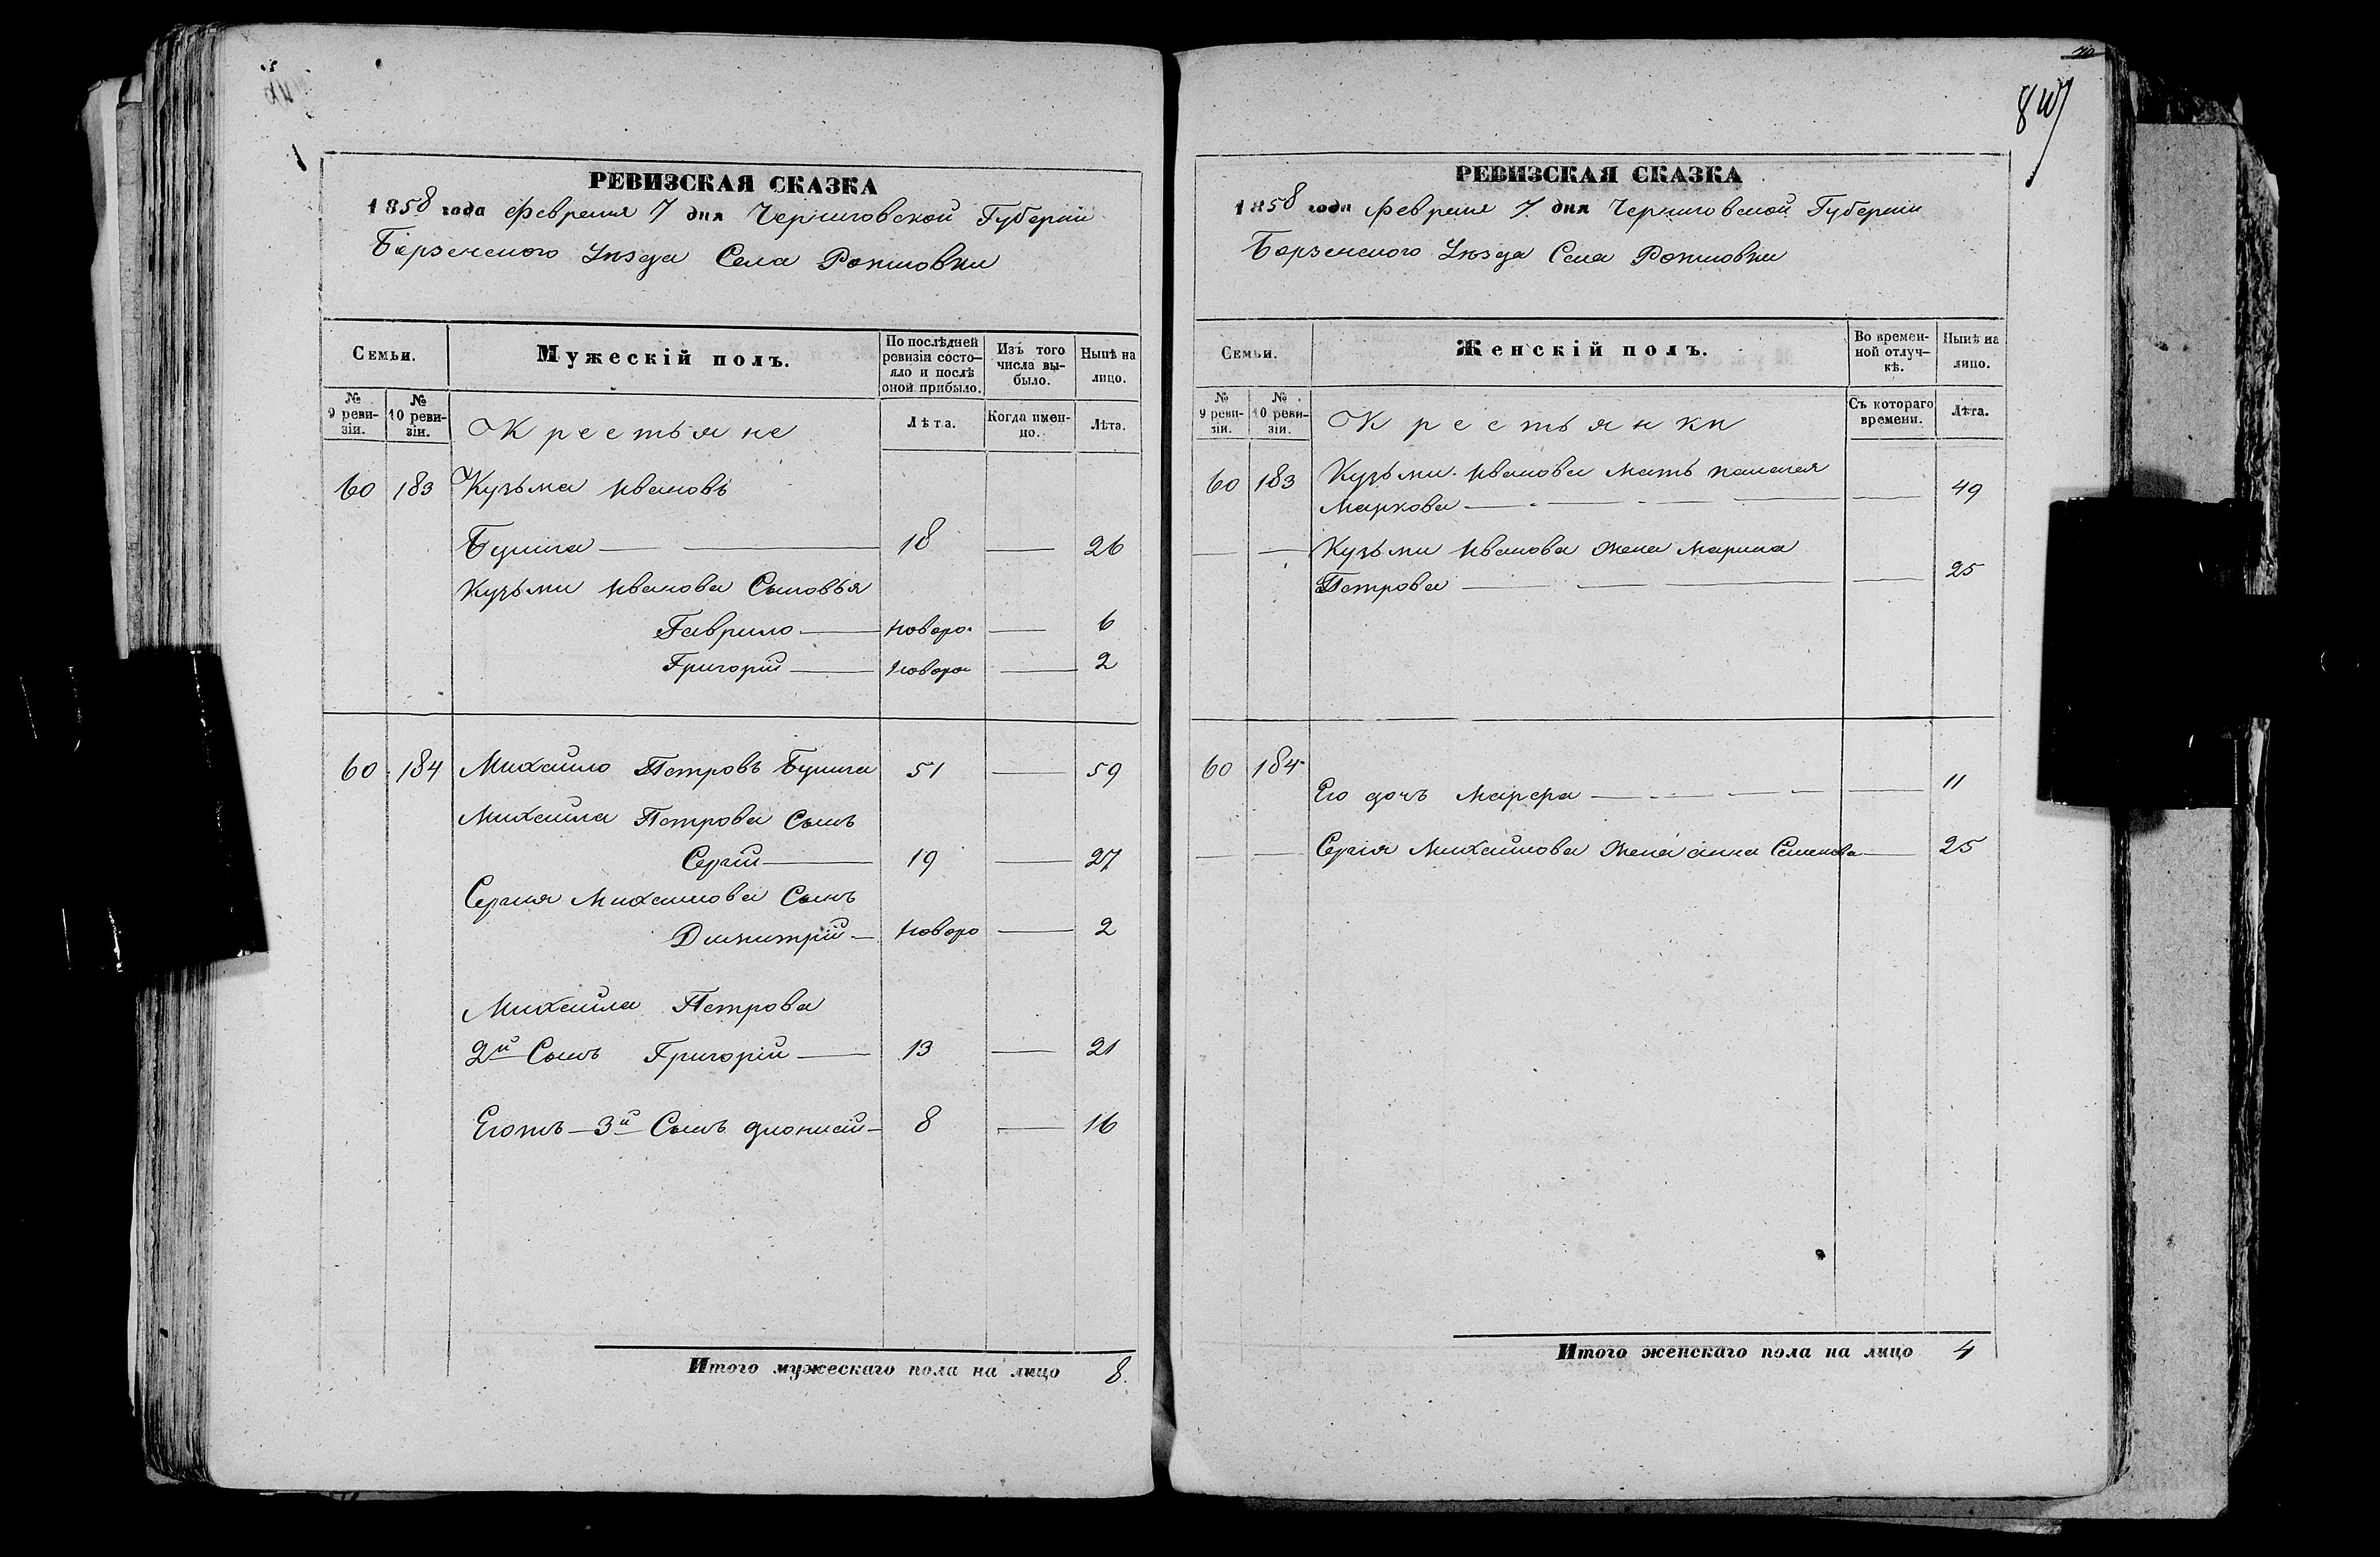 РЕВИЗСКАЯ СКАЗКА
1858 года февраля 7 дня Черниговской Губернии
Борзенского Уѣзда Села
Семьи.
Мужескій полъ.
По послѣдней ревизіи состо-
яло и послѣ
оной прибыло.
Изъ того
числа вы-
было.
Нынѣ на
лицо.
№
9 реви-
зіи.
№
10 реви-
зіи.
Крестьяне
Лѣта.
Когда имен-
но.
Лѣта.
60 183 Кузьма Ивановъ
18 — 26
Кузьмы Иванова Сыновья
Гаврило — новоро. — 6
Григорій — новоро — 2
60 184 Михайло Петровъ 51 — 59
Михайла Петрова Сынъ
Сергій — 19 — 27
Сергія Михайлова Сынъ
Димитрій — новоро — 2
Михайла Петрова
2й Сынъ Григорій — 13 — 21
Егожъ — 3й Сынъ Дионисій — 8 — 16
Итого мужескаго пола на лицо 8.
84
РЕВИЗСКАЯ СКАЗКА
1858 года февраля 7 дня Черниговской Губернии
Борзенского Уѣзда Села
Семьи.
Женскій полъ.
Во времен-
ной отлуч-
кѣ.
Нынѣ на
лицо.
№
9 реви-
зіи.
№
10 реви-
зіи.
Крестьянки
Съ котораго
времени.
Лѣта.
60 183 Кузьмы Иванова мать Палагея
Маркова — — 49
— — Кузьмы Иванова жена Марина
Петрова — — 25
60 184
Его дочь Марфа — — 11
— — Сергія Михайлова жена Анна Семенова — 25
Итого женскаго пола на лицо 4